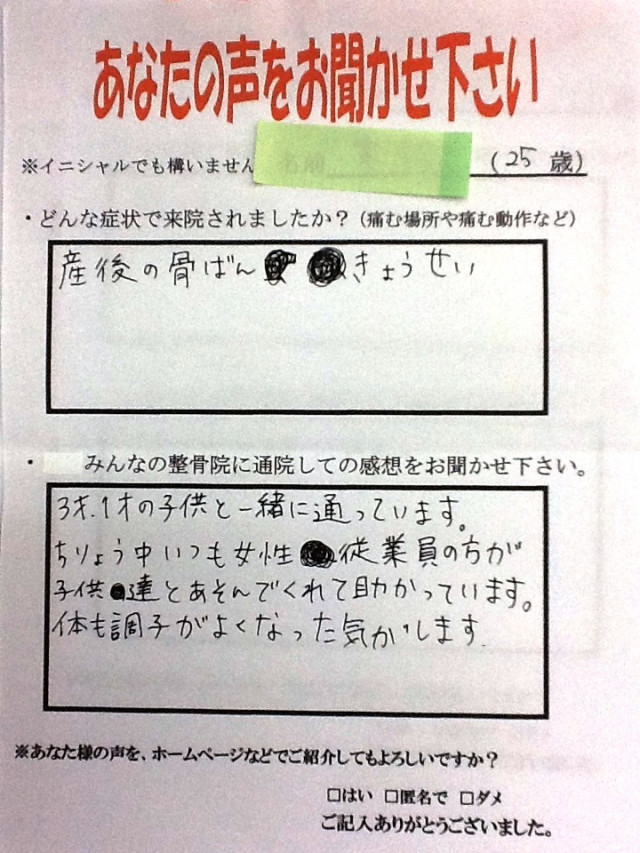 あなたの声をお聞かせ下さい
※イニシャルでも構いません 名前 (25 歳)
・どんな症状で来院されましたか？(痛む場所や痛む動作など)
産後の骨ばん きょうせい
・ みんなの整骨院に通院しての感想をお聞かせ下さい。
3才.1才の子供と一緒に通っています。
ちりょう中いつも女性 従業員の方が
子供 達とあそんでくれて助かっています。
体も調子がよくなった気がします.
※あなた様の声を、ホームページなどでご紹介してもよろしいですか？
□はい □匿名で □ダメ
ご記入ありがとうございました。